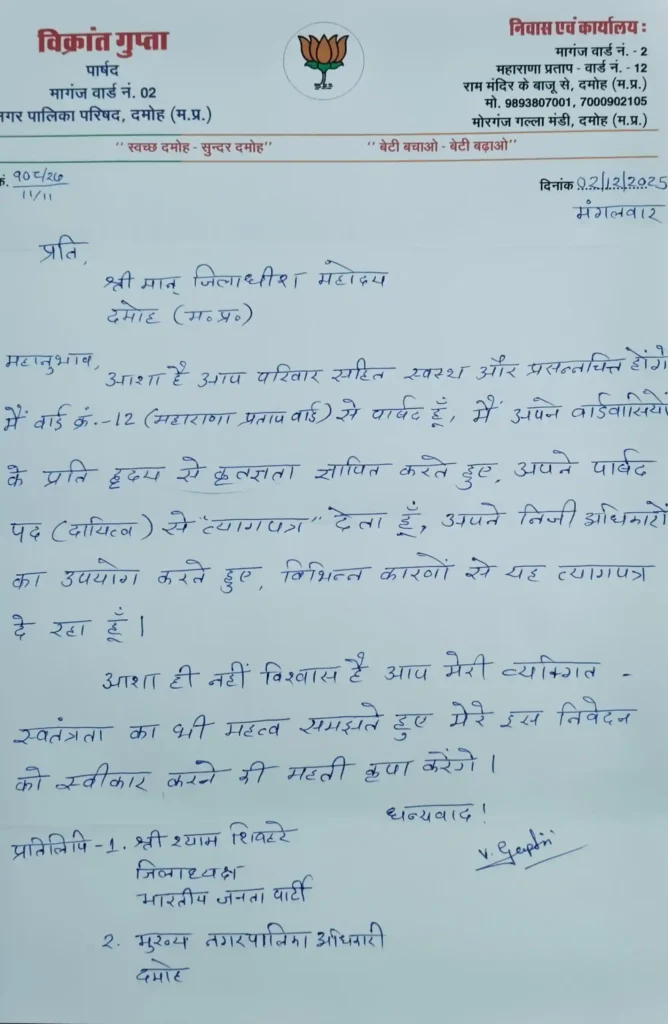 विक्रांत गुप्ता
पार्षद
मागंज वार्ड नं. 02
नगर पालिका परिषद, दमोह (म.प्र.)
निवास एवं कार्यालय :
मागंज वार्ड नं. - 2
महाराणा प्रताप - वार्ड नं. - 12
राम मंदिर के बाजू से, दमोह (म.प्र.)
मो. 9893807001, 7000902105
मोरगंज गल्ला मंडी, दमोह (म.प्र.)
'' स्वच्छ दमोह - सुन्दर दमोह'' '' बेटी बचाओ - बेटी बढ़ाओ''
क्रं. 11/11
दिनांक 02/12/2025
मंगलवार
प्रति,
श्री मान् जिलाधीश महोदय
दमोह (म.प्र.)
महानुभाव,
आशा है आप परिवार सहित स्वस्थ और प्रसन्नचित्त होंगे
मैं वार्ड क्रं.-12 (महाराणा प्रताप वार्ड) से पार्षद हूँ, मैं अपने वार्डवासियों
के प्रति हृदय से कृतज्ञता ज्ञापित करते हुए, अपने पार्षद
पद (दायित्व) से "त्यागपत्र" देता हूँ, अपने निजी अधिकारों
का उपयोग करते हुए, विभिन्न कारणों से यह त्यागपत्र
दे रहा हूँ।
आशा ही नहीं विश्वास है आप मेरी व्यक्तिगत -
स्वतंत्रता का भी महत्व समझते हुए मेरे इस निवेदन
को स्वीकार करने की महती कृपा करेंगे।
धन्यवाद!
V. Gupta
प्रतिलिपि - 1. श्री श्याम शिवहरे
जिलाध्यक्ष
भारतीय जनता पार्टी
2. मुख्य नगरपालिका अधिकारी
दमोह